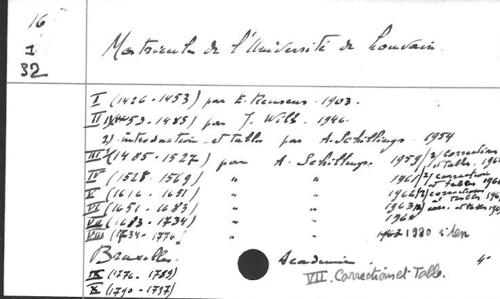 16
1
32
Matricule de l'Université de Louvain.
I (1426-1453) par E. Reusens. 1903.
II (1453-1485) par J. Wils. 1946.
2) introduction et tables par A. Schillings 1954
III (1485-1527) par A. Schillings. 1958/2) correction et tables. 196
IV (1528-1569) " " 1961/2) correction et tables 196
V (1616-1651) " " 1962/2) corrections et tables 196
VI (1651-1683) " " 1963/2) corr. et tables 196
VII (1683-1734) " "
VIII (1734-1776) " " 1980 i ten
Bruxelles. Académie 4°
IX (1776-1789)
X (1790-1797)
VII. Correction et Table.